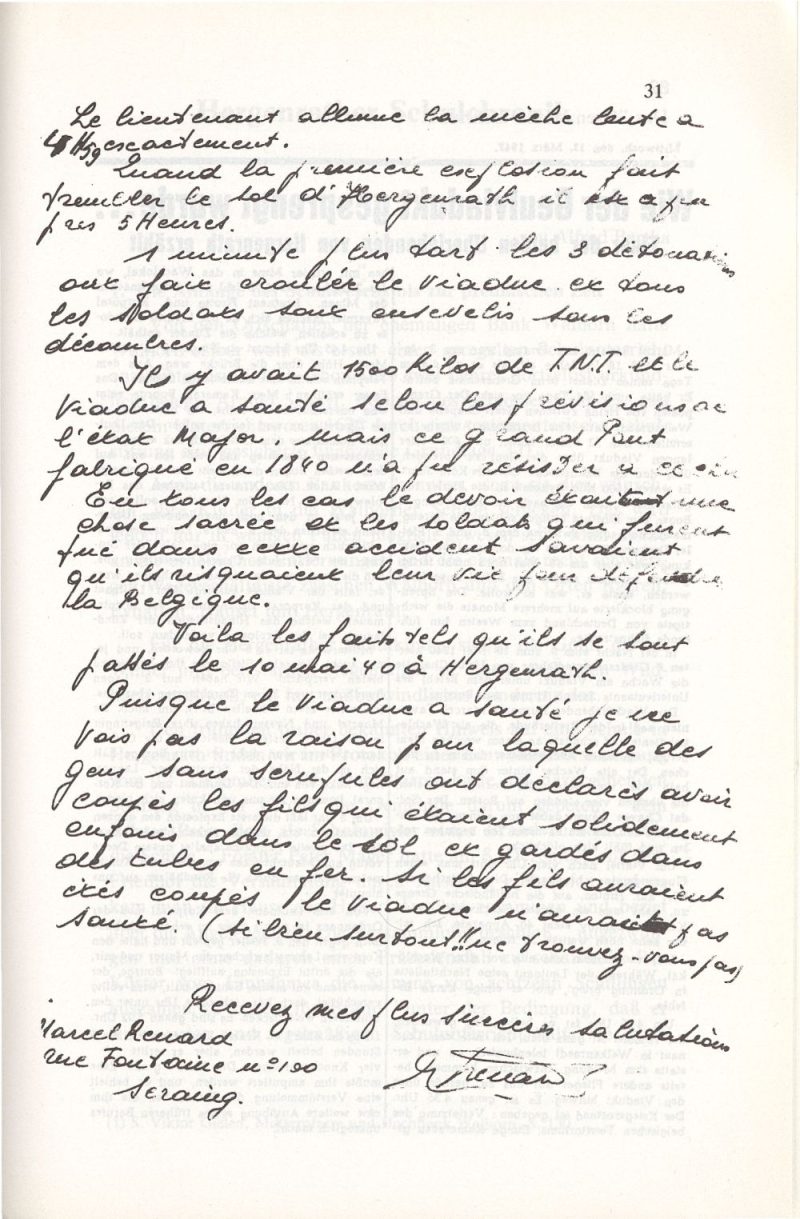 31
Le lieutenant allume la mèche lente a
4H59 exactement.
Quand la première explosion fait
trembler le sol d'Hergenrath il est a peu
pres 5 Heures.
1 minute plus tard les 3 détonations
ont fait crouler le viaduc et tous
les soldats sont ensevelis sous les
décombres.
Ils y avait 1500 kilos de T.N.T. et le
Viaduc a sauté selon les prévisions de
l'état Major, mais ce grand Pont
fabriqué en 1840 n'a pu résister a ce
En tous les cas le devoir était une
chose sacrée et les soldats qui furent
tué dans cette accident savaient
qu'ils risquaient leur vie pour défendre
la Belgique.
Voila les faits tels qu'ils se sont
passés le 10 mai 40 à Hergenrath.
Puisque le viaduc a sauté je ne
vois pas la raison pour laquelle des
gens sans scrupules ont déclarés avoir
coupés les fils qui étaient solidement
enfouis dans le sol et gardés dans
des tubes en fer. Si les fils auraient
étés coupés le viaduc n'aurait pas
sauté. (si bien surtout!! ne trouvez-vous pas)
Recevez mes plus sincères salutations
Marcel Renard
rue Fontaine n° 190
Seraing.
M Renard